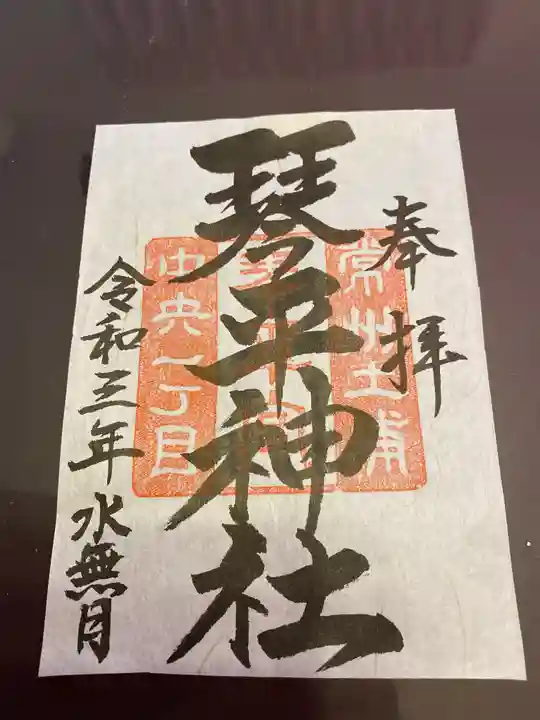 奉拝
常州土浦
琴平神社
中央一丁目
令和三年水無月